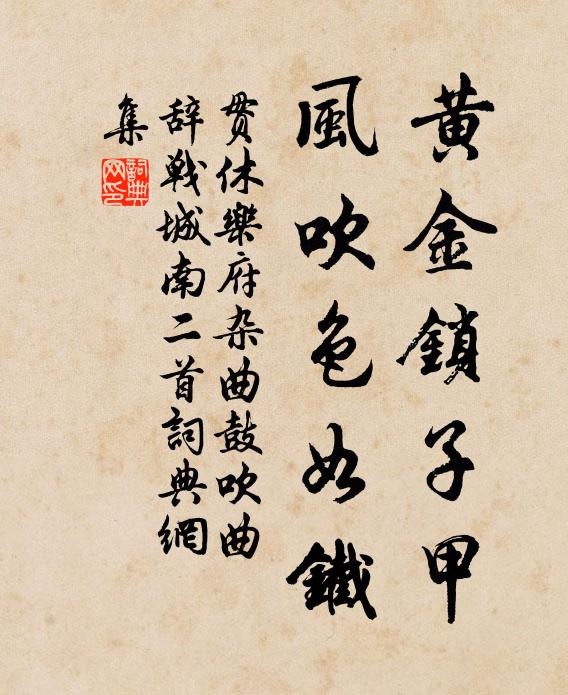 黄金鎖子甲
風吹色如鐵
贯休樂府杂曲鼓吹曲
辞戦城南二首詞典網
集
詞典
网印